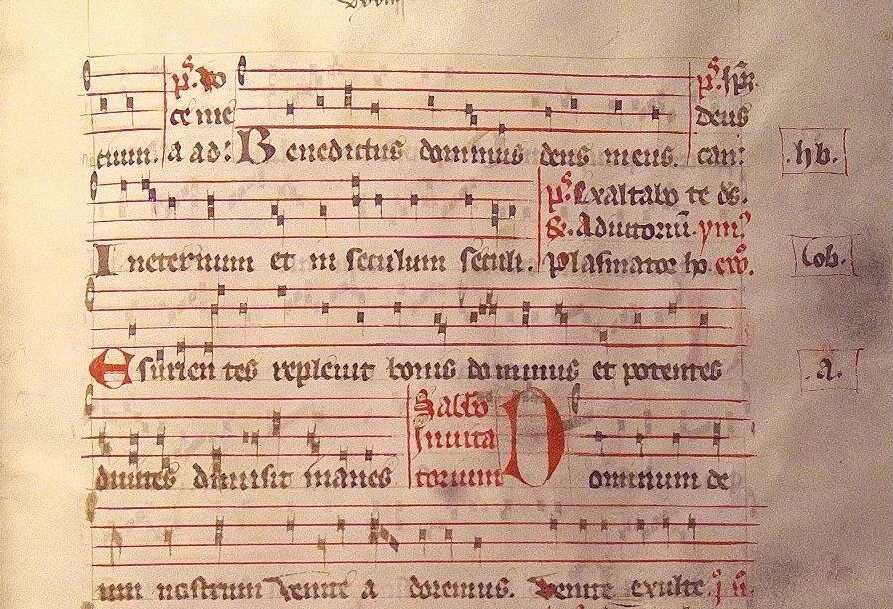 ps. do
ce me ps.
deus
tuum. a ad: Benedictus dominus deus meus. can:
.hb.
ps. Exaltabo te ds.
&. Adiutorium. ym.
In eternum et in seculum seculi. Plasmator ho
Cob.
Esurientes repleuit bonis dominus et potentes
.a.
Sabbo
inuita
diuites dimisit inanes torium Dominum de
um nostrum Venite a doremus. Venite exulte.